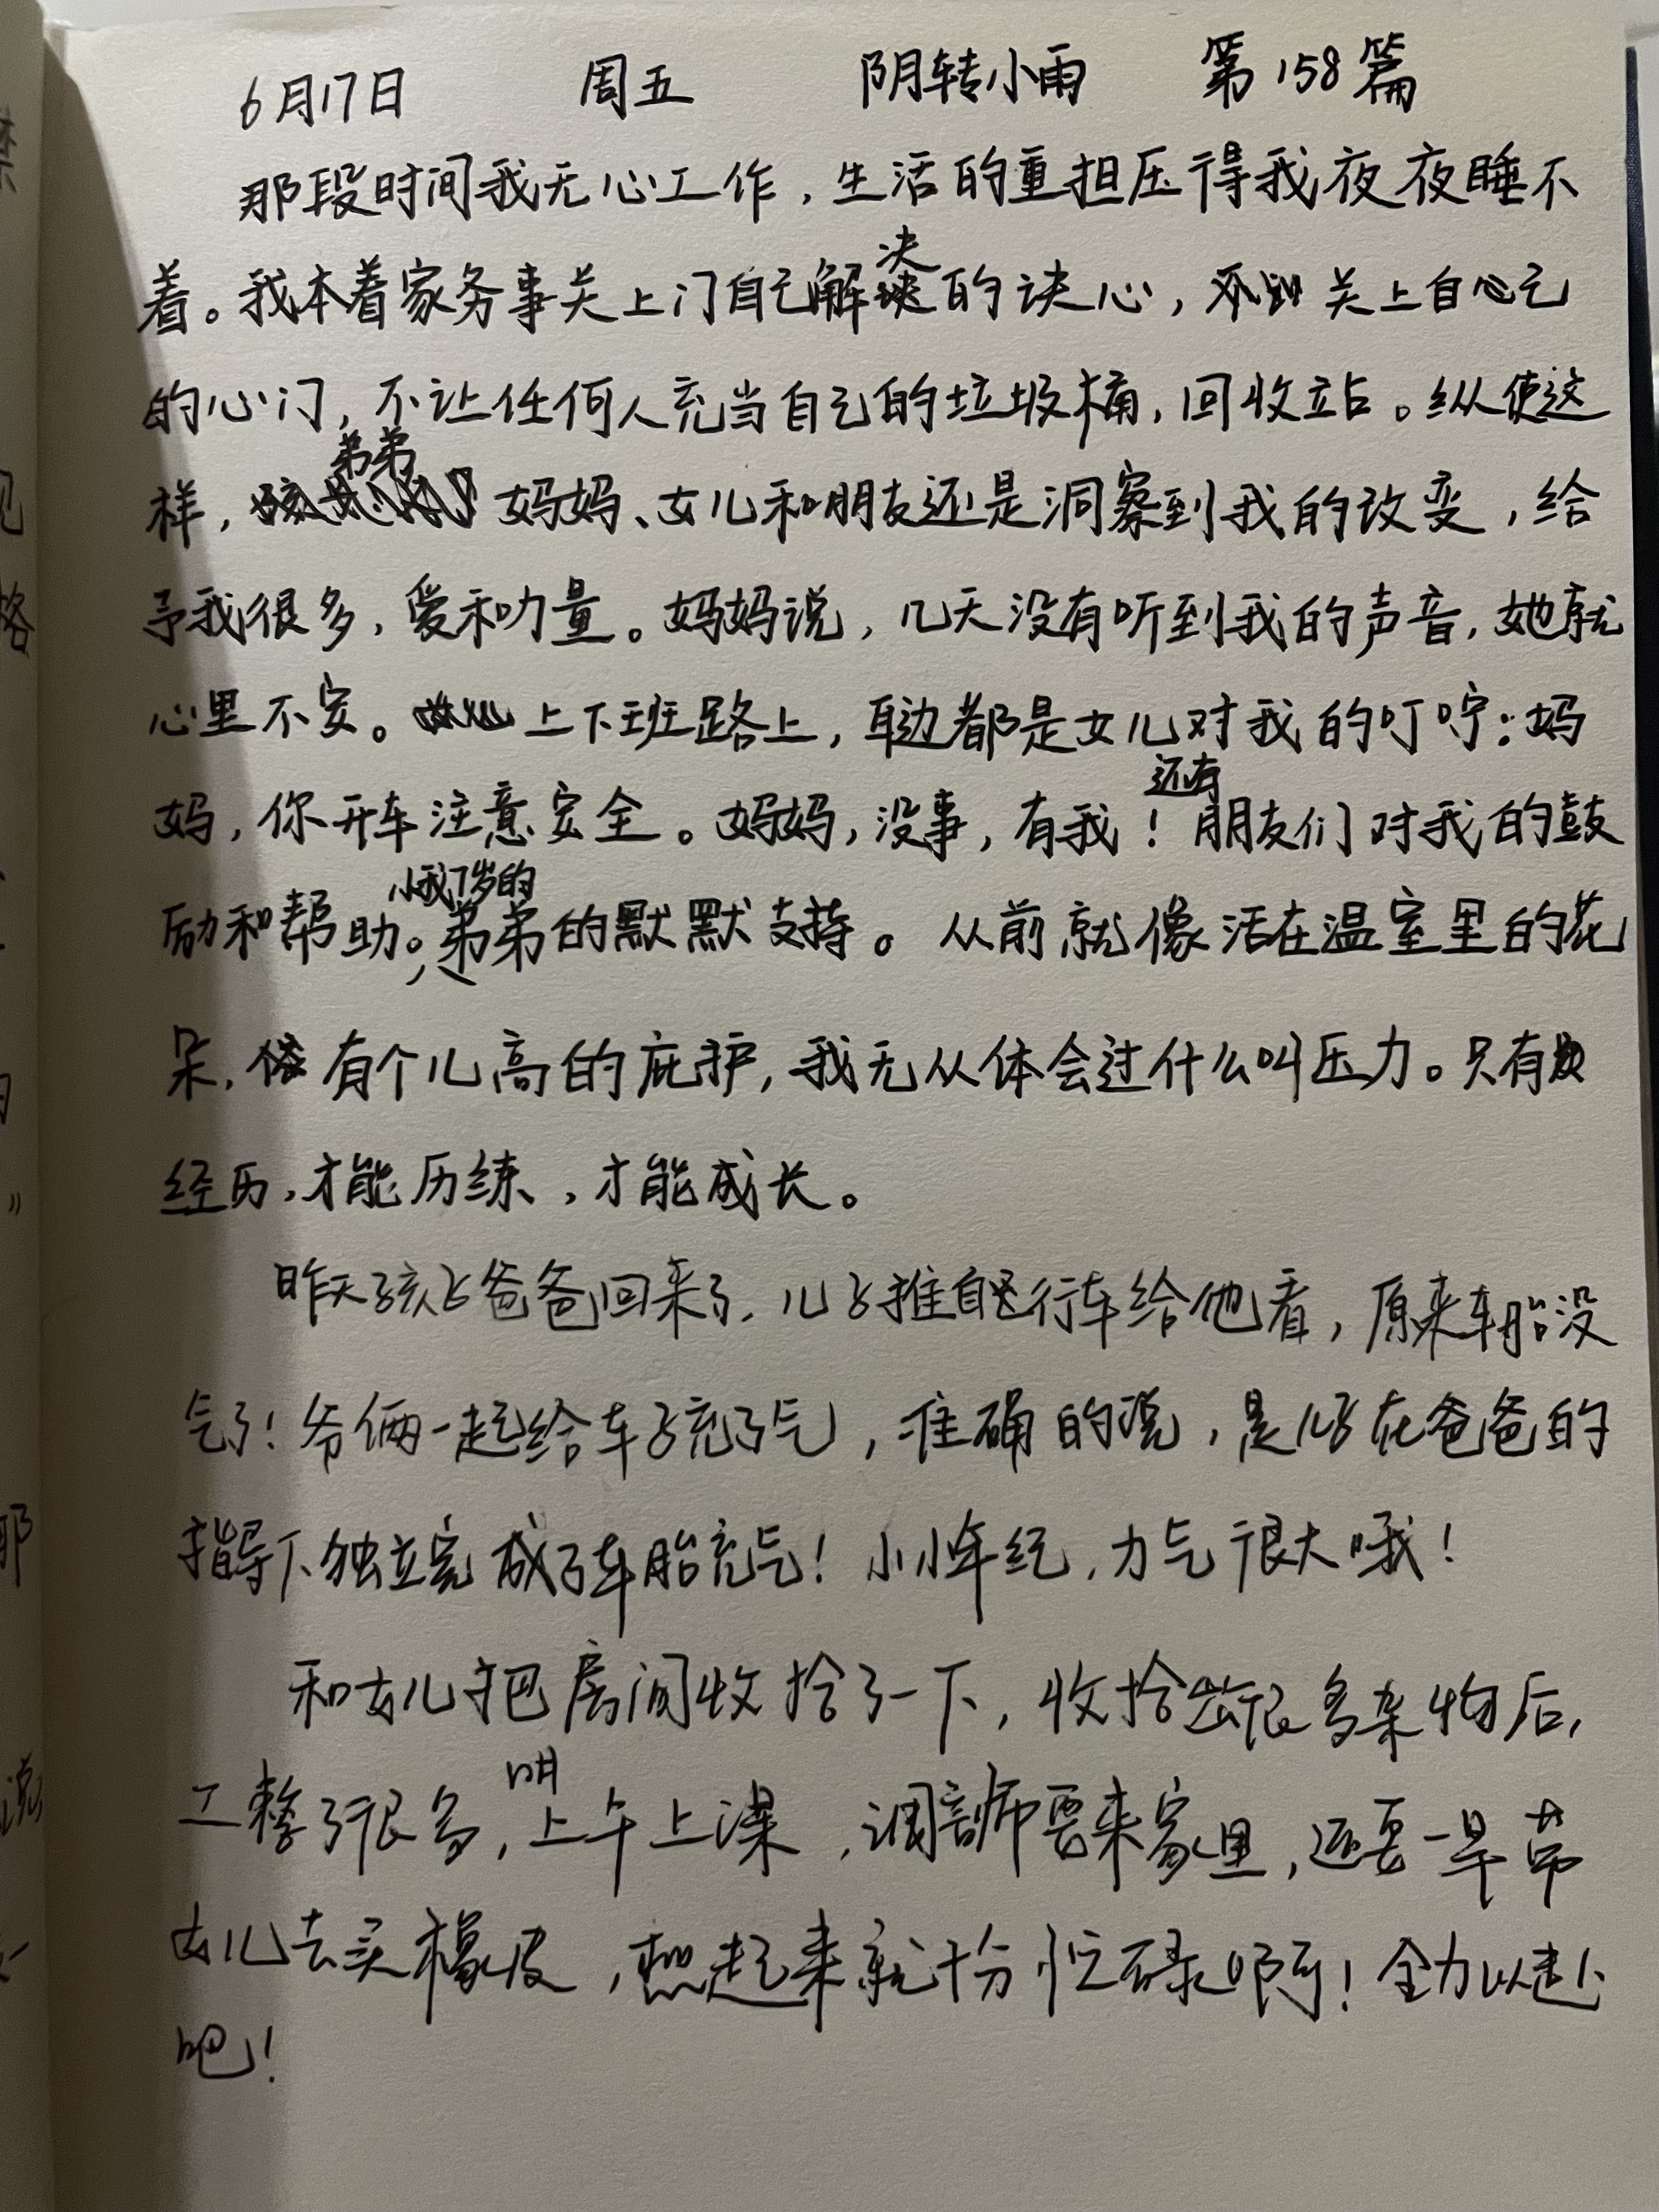 6月17日 周五 阴转小雨 第158篇
那段时间我无心工作，生活的重担压得我夜夜睡不
着。我本着家务事关上门自己解决的诀心，关上自己
的心门，不让任何人充当自己的垃圾桶，回收站。纵使这
样，弟弟妈妈、女儿和朋友还是洞察到我的改变，给
予我很多，爱和力量。妈妈说，几天没有听到我的声音，她就
心里不安。上下班路上，耳边都是女儿对我的叮咛：妈
妈，你开车注意安全。妈妈，没事，有我！还有朋友们对我的鼓
励和帮助。小我7岁的弟弟的默默支持。从前就像活在温室里的花
朵，有个儿高的庇护，我无从体会过什么叫压力。只有
经历，才能历练，才能成长。
昨天孩子爸爸回来了，儿子推自行车给他看，原来车胎没
气了！爷俩一起给车子充了气，准确的说，是儿子在爸爸的
指导下独立完成了车胎充气！小小年纪，力气很大哦！
和女儿把房间收拾了一下，收拾出很多杂物后，
工整了很多，明上午上课，调音师要来家里，还要一早带
女儿去买橡皮，想起来就十分忙碌啊！全力以赴
吧！